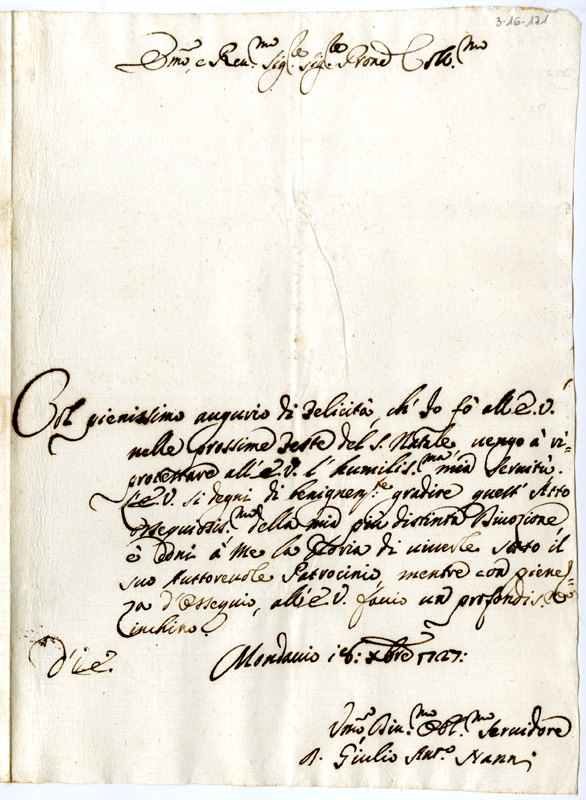 3-16-171
Em.º e Rev.mo Sig.re Sig.re Prone Coll.mo
Col pienissimo augurio di Felicità, ch' Io fò all'E.V.
nelle prossime Feste del S. Natale vengo à ri-
protestare all'E.V. l'humiliss.ma mia Servitù.
L'E.V. si degni di benignem.te gradire quest'Atto
ossequiosiss.mo della mia più distinta Divozione
e doni à Me la Gloria di vivere sotto il
suo Auttorevole Patrocinio, mentre con pienez-
za d'Ossequio, all'E.V. faccio un profondiss.mo
inchino.
D.V.E. Mondavio 18: Xbre 1727:
Um.º Div.mo Obl.mo Servidore
Giulio Ant.º Nanni